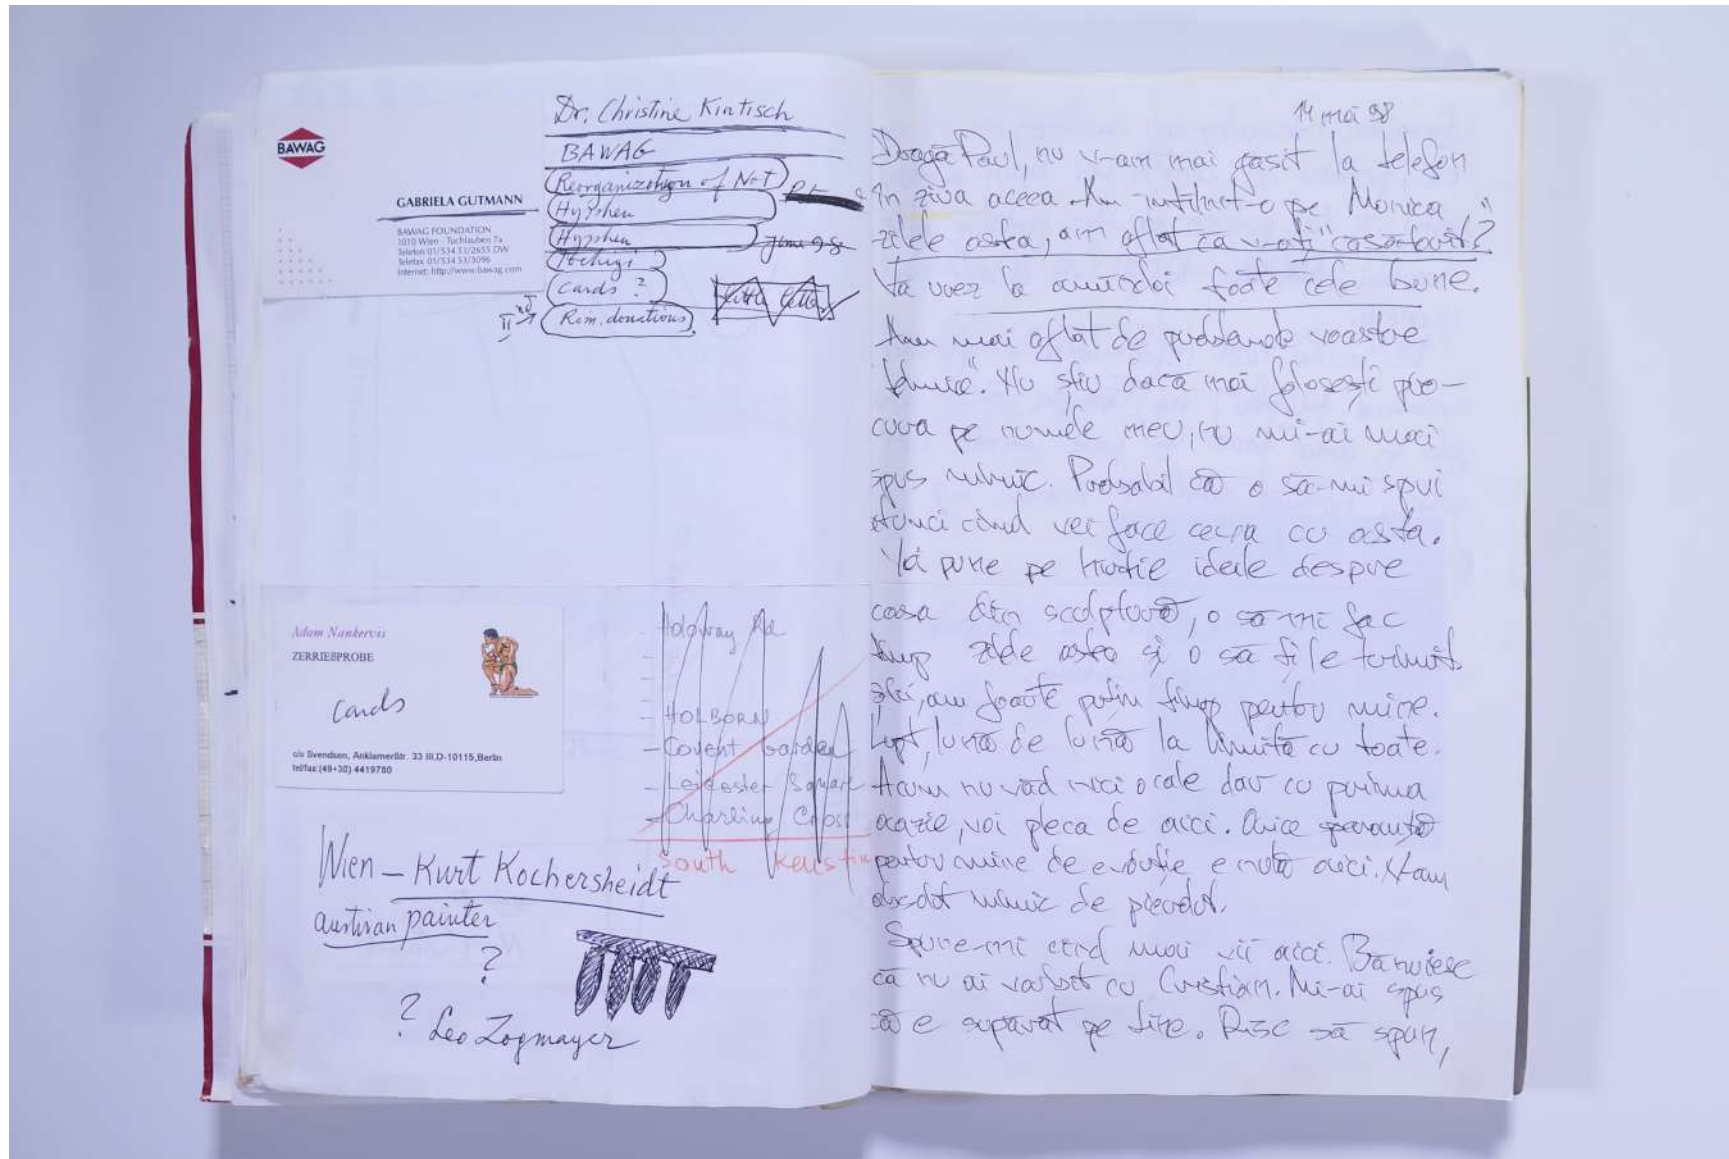 BAWAG
GABRIELA GUTMANN
BAWAG FOUNDATION
1010 Wien - Tuchlauben 7a
Telefon 01/534 53/2655 DW
Telefax 01/534 53/3096
Internet: http://www.bawag.com
Dr. Christine Kintisch
BAWAG
Reorganization of N+T
Hyphen
Hyphen
June 98
Cards ?
little
IInd → Rem. donations
Adam Nankervis
ZERRIEBPROBE
cards
c/o Svendsen, Anklamerßtr. 33 III,D-10115,Berlin
tel/fax:(49+30) 4419780
Holoway Rd
- HOLBORN
- Covent Garden
- Leicester Square
- Charling Cross
South
Wien - Kurt Kochersheidt
austrian painter
?
? Leo Zogmayer
14 mai 98
Dragă Paul, nu v-am mai gasit la telefon
în ziua aceea. Am intilnit-o pe Monica
zilele asta, am aflat că v-ați "casatorit"?
Va urez la amindoi toate cele bune.
Am mai aflat de problemele voastre
"tehnice". Nu știu dacă mai folosești pro-
cura pe numele meu, nu mi-ai mai
spus nimic. Probabil că o să-mi spui
atunci când vei face ceva cu asta.
pune pe hirtie ideile despre
casa din sculptură, o să-mi fac
timp zilele astea și o să ti le trimit.
am foarte putin timp pentru mine.
Lupt, lună de lună la limită cu toate.
Acum nu văd nici o cale dar cu prima
ocazie, voi pleca de aici. Orice speranță
pentru mine de evoluție e nulă aici. N-am
absolut nimic de pierdut.
Spune-mi cînd mai vii aici. Bănuiesc
că nu ai vorbit cu Cristian. Mi-ai spus
că e supărat pe tine. Risc să spun,